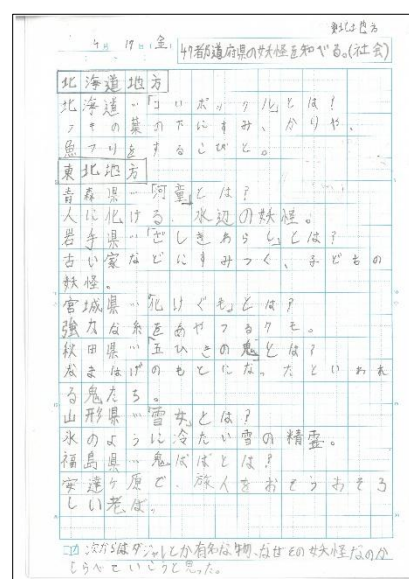 4月19日(金)
47都道府県の妖怪を知べる。(社会)
北海道地方
北海道…「コロポックル」とは?
フキの葉の下にすみ、かりや、
魚つりをするこびと。
東北地方
青森県…「河童」とは?
人に化ける、水辺の妖怪。
岩手県…「ざしきわらし」とは?
古い家などにすみつく、子どもの
妖怪。
宮城県…「化けぐも」とは?
強力な糸をあやつるクモ。
秋田県…「五ひきの鬼」とは?
なまはげのもとになったといわれ
る鬼たち。
山形県…「雪女」とは?
氷のように冷たい雪の精霊。
福島県…鬼ばばとは?
安達ヶ原で、旅人をおそうおそろ
しい老ば。
次からはダジャレとか有名な物、なぜその妖怪なのか
しらべていこうと思った。